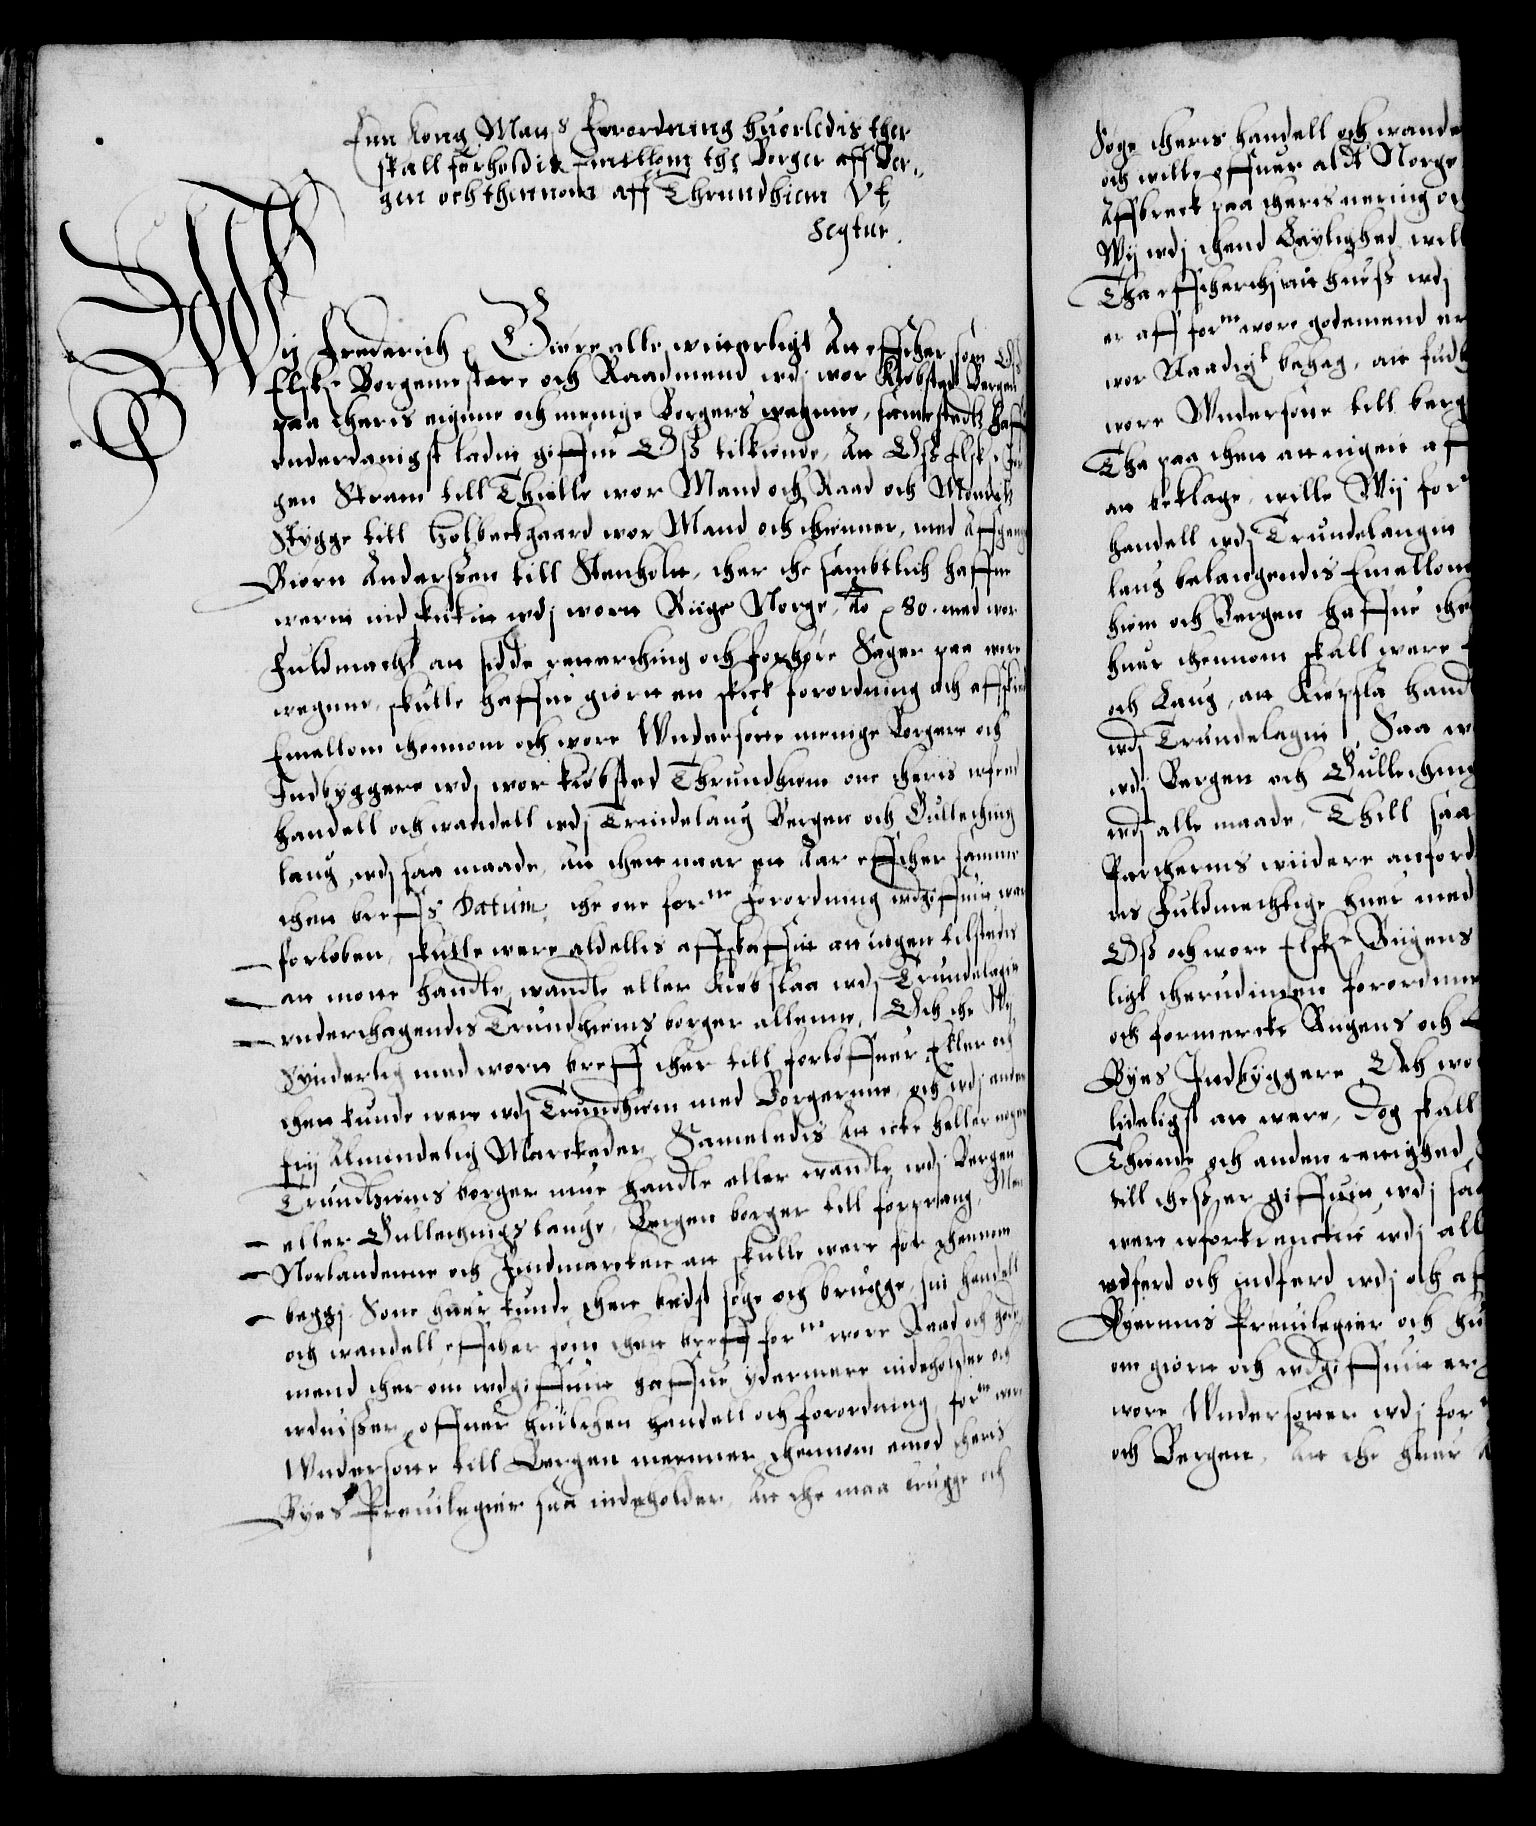 Enn Kong Mats Forordning huorledis ther
skall forholdis Emellom the Borger aff Ber,,
gen och thennom aff Thrundhiem Vt
Seqtur.
Wij Frederich Giøre alle witterligt At effther som Oss
Elske Borgemestere och Raadmend udj wor Kiøbsted Bergen
paa theris eigene och menige Borgers wegnne, sammestedtz haffue
vnderdanigst ladet giffue Oss tilkiende, At Oss Elskelige
gen Stram till Thielle wor Mand och Raad och Mondtz
Stygge till Holbeckgaard wor Mand och thienner, med Affgangne
Biørn Anderssen till Stenholt, ther the sambtlich haffue
werit nidskicket udj wort Riige Norge, Ao 80. med wor
Fuldmacht at sidde retterthing och forhøre Sager paa wore
wegnne, skulle haffue giort en skick forordning och affskied
Emellom thennom och wore Wndersotte menige Borgere och
Indbyggere udj wor kiøbsted Thrundhiem om theris
handell och wandell udj Trundelaug Bergen och Gulething
laug, udj saa maade, At then naar en Aar effther samme
then breffs Datum, the om forne Forordning udgiffuit war
forløben, skulle were aldelis affskaffit at ingen tilstedis
at mone handle, wandle eller kiøbslaa udj Trundelagen
vnderthagendis Trundhiems borger allenne, Och the
Synderlig med wort breff ther till forløffuer Eller och
then kunde were udj Trundhiem med Borgerne, och udj anden
frij Almindelig Marckeder, Sameledis At icke heller nogen
Trundhiems borger mue handle eller wandle udj Bergen
eller Gullethings laug, Bergen borger till forprang, Men
Norlandenne och Findmarcken at skulle were for thennom
beggj Som huer kunde then beedst søge och brugge sin handell
och wandell, effther som then breff forne wore Raad och gode
mend ther om udgiffuit haffue ydermere indeholder och
uduisser, offuer huilchen handell och forordning forne wore
Wndersotte till Bergen meenner thennom emod theris
Byes Preuilegier saa indeholder, At the maa brugge och
Søge theris handell och wande
och wille offuer aldt Norge
Affbreck paa theris nering oc
Wij udj thend Leylighed will
Tha effther thj att huess udj
er aff forne wore godemend er
wor Naadigst behag, at ind
wore Wndersotte till berg
Tha paa then at ingen aff
at beklage, wille Wij forne
handell udj Trundelaugen
laug belangendis Emellom
hiem och Bergen haffue the
huer thennom skall were
och Laug, at kiøpsla handt
udj Trundelagen, Saa w
udj Bergen och Gullething
udj alle maade, Thill saa
Partherns widere anford
des Fuldmechtige huer med
Oss och wore Elske Riigens
ligt therudinden forordne
och formercke Rigens och
Byes Indbyggere Och wo
lideligst at were, Dog skall
Thiene och anden rettighed
till thess er giffuen udj saa
were uforkrencket udj all
udferd och indferd udj och aff
Byernnis Preuilegier och hu
om giort och udgiffuit er
wore Wndersotter udj forne
och Bergen, At the huer